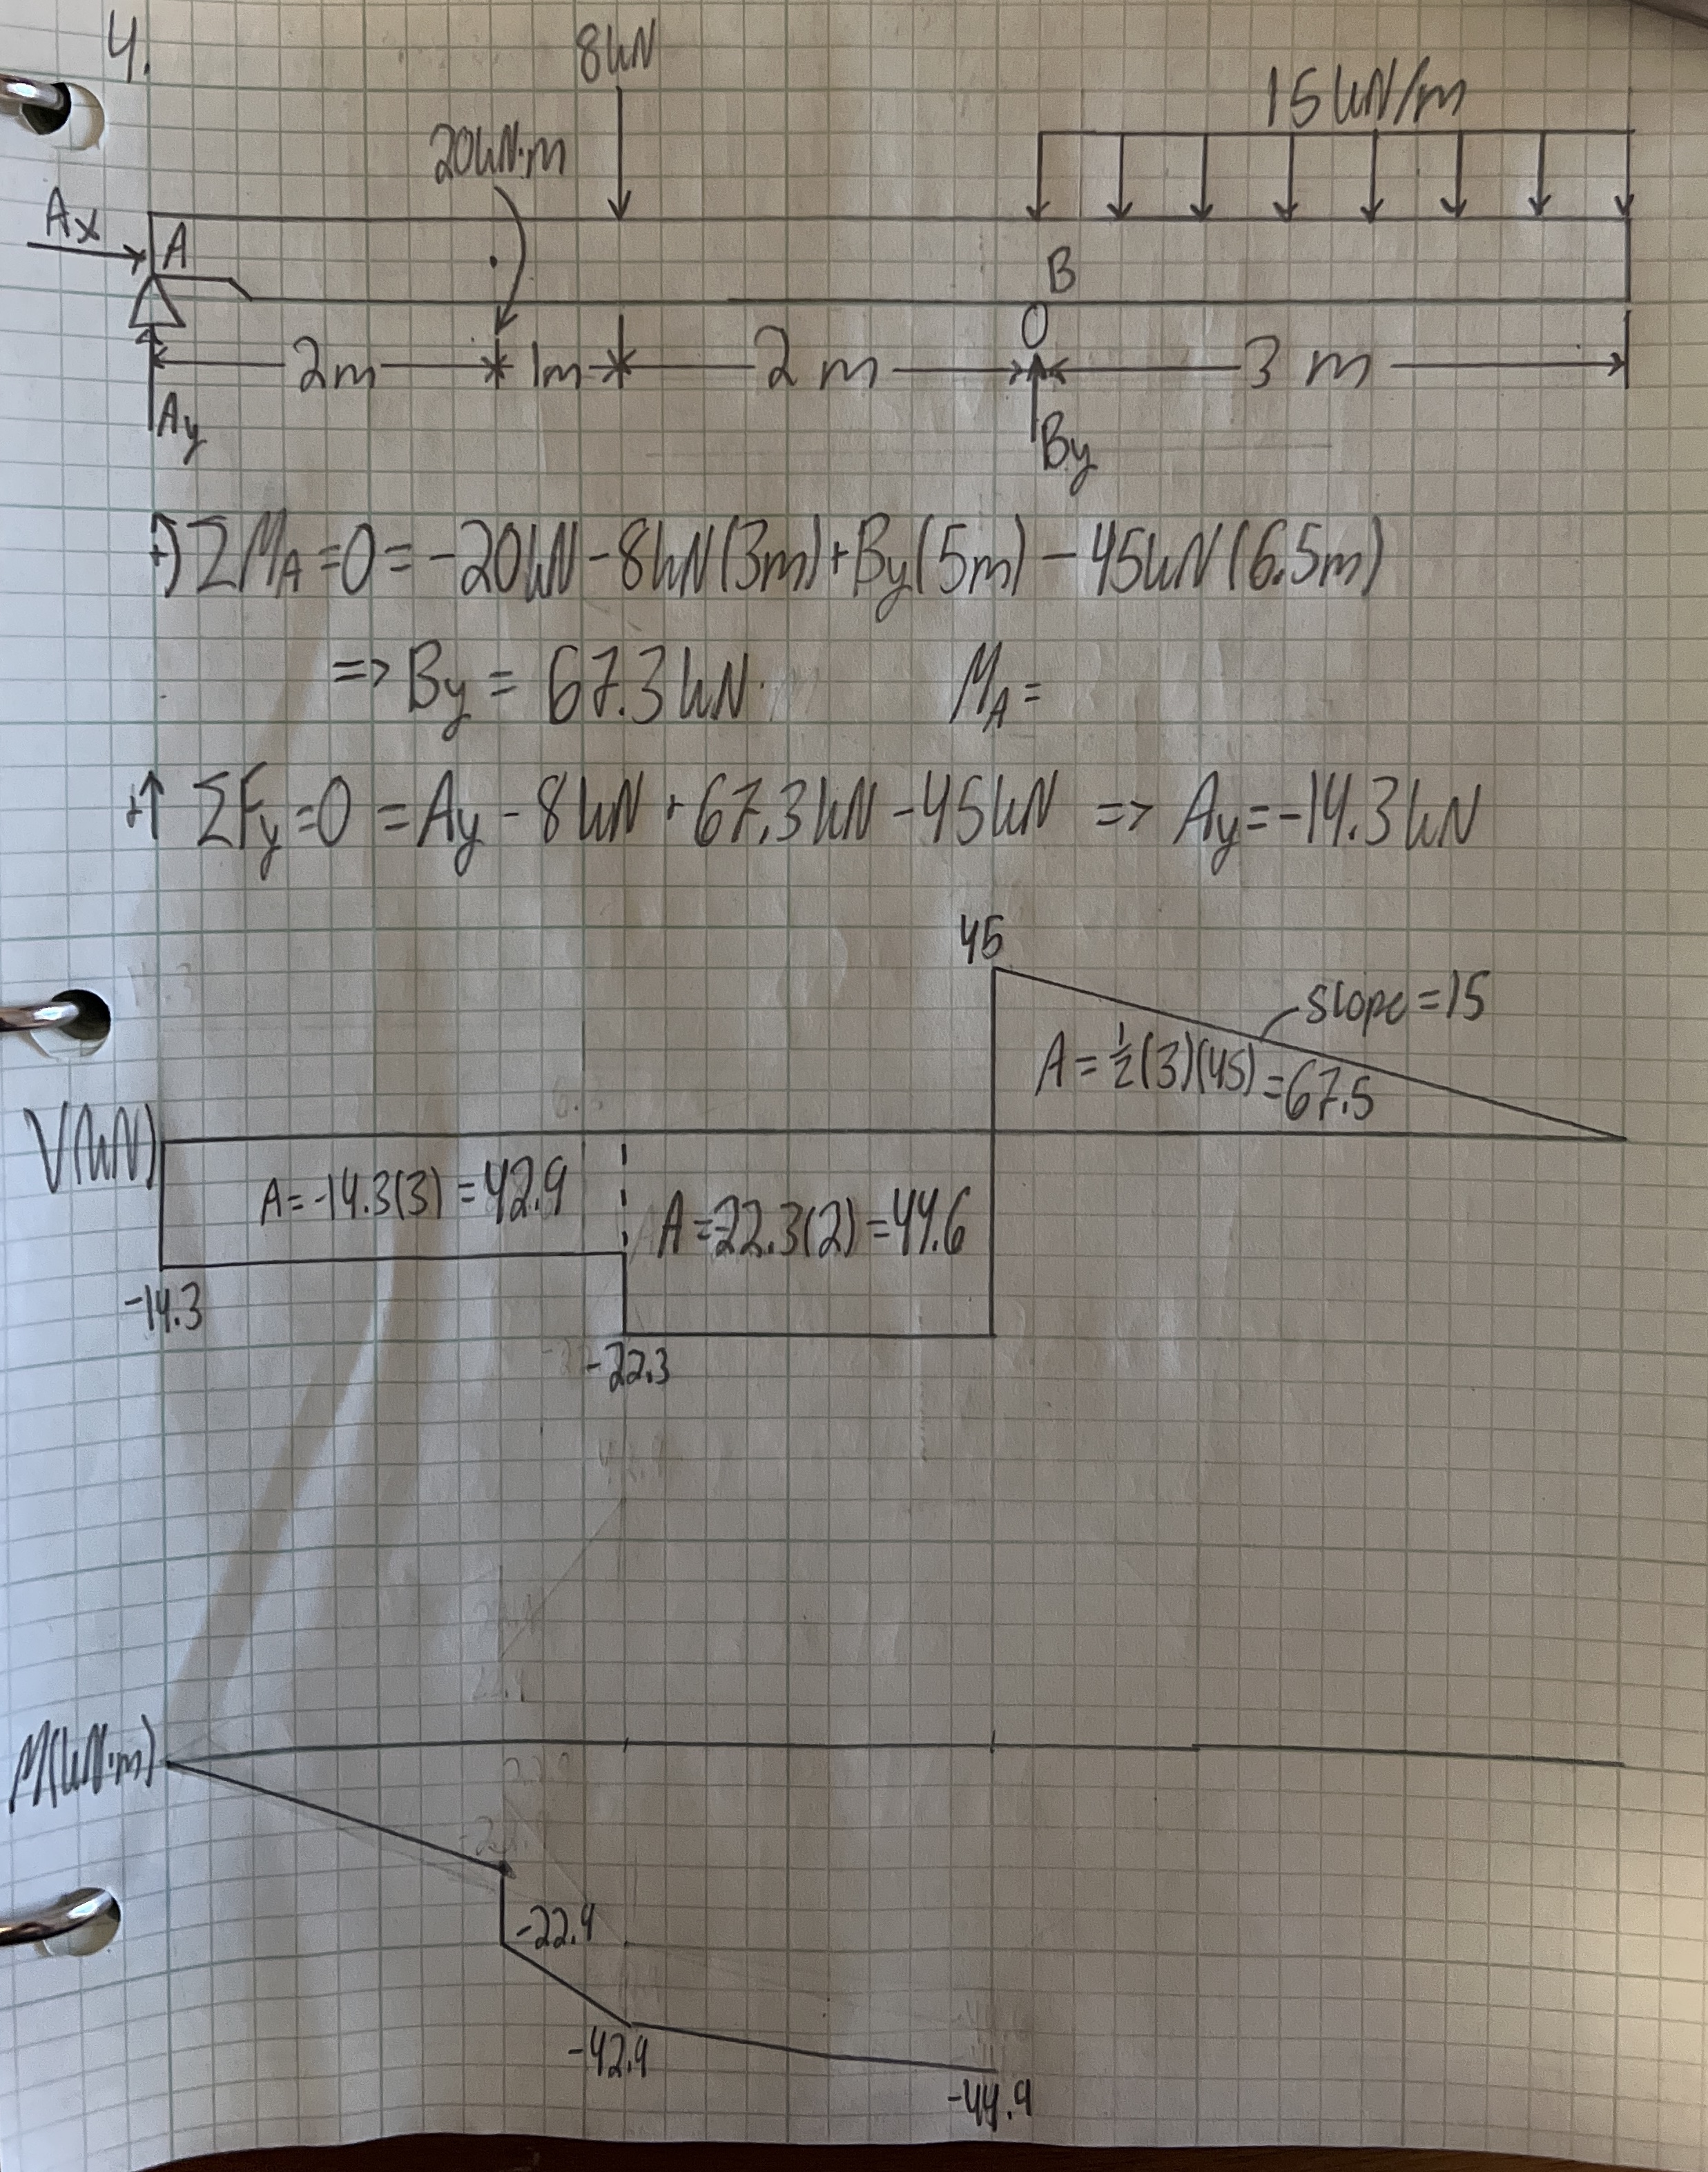 4.
8kN
15kN/m
20kN·m
Ax
A
B
2m 1m 2m 3m
Ay
By
+) ΣMA=0=-20kN-8kN(3m)+By(5m)-45kN(6.5m)
=> By = 67.3kN MA=
+↑ ΣFy=0 = Ay-8kN+67.3kN-45kN => Ay=-14.3kN
45
slope=15
A=½(3)(45)=67.5
V(kN)
A=-14.3(3)=42.9
A=-22.3(2)=44.6
-14.3
-22.3
M(kN·m)
-22.9
-42.9
-44.9